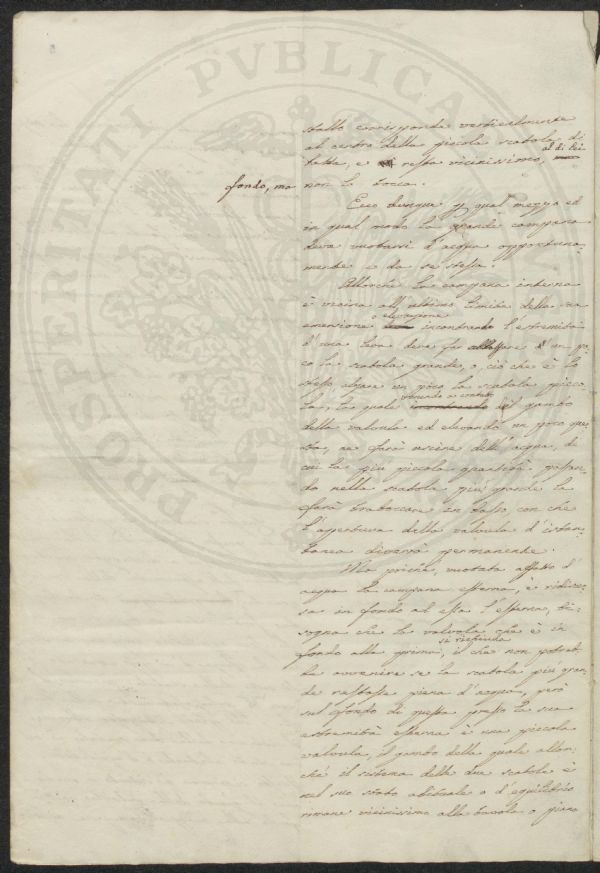 PROSPERITATI PVBLICAE
stallo corrisponde verticalmente
al centro della piccola scatola, di
latta, e resta vicinissimo, al di lei
fondo, ma non lo tocca.
Ecco dunque qual mezzo ed
in qual modo la grande campana
deva vuotarsi d'acqua opportuna-
mente e da se stessa.
Allorchè la campana interna
è vicina all'ultimo limite della sua
o elevazione incontrando l'estremità
d'una leva deve far abbassare d'un po-
co la scatola grande, o, ciò che è lo
stesso, alzare un poco la scatola picco-
la, la quale venendo a contatto il gambo
della valvula ed elevando un poco que-
sta, ne farà uscire dell'acqua, di
cui la più piccola quantità passan-
do nella scatola più grande la
farà traboccare in basso con che
l'apertura della valvula d'istan-
tanea diverrà permanente.
Ma prima, vuotata affatto d'
acqua la campana esterna, e ridisce-
sa in fondo al essa l'esterna, bi-
sogna che la valvola che è in
fondo alla prima, si richiuda, il che non potreb-
be avvenire se la scatola più gran-
de restasse piena d'acqua, però
sul fondo di questa presso la sua
estremità esterna è una piccola
valvula, il gambo della quale allor-
chè il sistema delle due scatole è
nel suo stato abituale o d'equilibrio
rimane vicinissimo alla tavola o piano